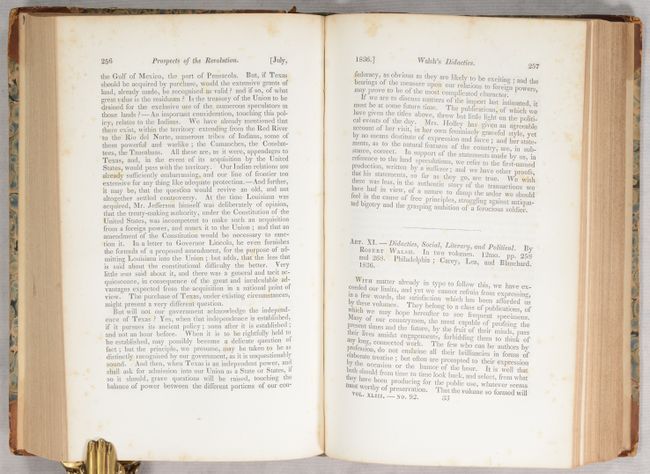 256 Prospects of the Revolution. [July,
the Gulf of Mexico, the port of Pensacola. But, if Texas
should be acquired by purchase, would the extensive grants of
land, already made, be recognised as valid? and if so, of what
great value is the residuum? Is the treasury of the Union to be
drained for the exclusive use of the numerous speculators in
those lands? — An important consideration, touching this pol-
icy, relates to the Indians. We have already mentioned that
there exist, within the territory extending from the Red River
to the Rio del Norte, numerous tribes of Indians, some of
them powerful and warlike; the Camanches, the Conchat-
tees, the Tarankams. All these are, as it were, appendages to
Texas, and, in the event of its acquisition by the United
States, would pass with the territory. Our Indian relations are
already sufficiently embarrassing, and our line of frontier too
extensive for any thing like adequate protection. — And further,
it may be, that the question would revive an old, and not
altogether settled controversy. At the time Louisiana was
acquired, Mr. Jefferson himself was deliberately of opinion,
that the treaty-making authority, under the Constitution of the
United States, was incompetent to make such an acquisition
from a foreign power, and annex it to the Union; and that an
amendment of the Constitution would be necessary to sanc-
tion it. In a letter to Governor Lincoln, he even furnishes
the formula of a proposed amendment, for the purpose of ad-
mitting Louisiana into the Union; but adds, that the less that
is said about the constitutional difficulty the better. Very
little was said about it, and there was a general and tacit ac-
quiescence, in consequence of the great and incalculable ad-
vantages expected from the acquisition in a national point of
view. The purchase of Texas, under existing circumstances,
might present a very different question.
But will not our government acknowledge the independ-
ence of Texas? Yes, when that independence is established,
if it pursues its ancient policy; soon after it is established;
and not an hour before. When it is to be rightfully held to
be established, may possibly become a delicate question of
fact; but the principle, we presume, may be taken to be as
distinctly recognised by our government, as it is unquestionably
sound. And then, when Texas is an independent power, and
shall ask for admission into our Union as a State or States, if
so it should, grave questions will be raised, touching the
balance of power between the different portions of our con-
1836.] Walsh's Didactics. 257
federacy, as obvious as they are likely to be exciting; and the
bearings of the measure upon our relations to foreign powers,
may prove to be of the most complicated character.
If we are to discuss matters of the import last indicated, it
must be at some future time. The publications, of which we
have given the titles above, throw but little light on the politi-
cal events of the day. Mrs. Holley has given an agreeable
account of her visit, in her own feminine graceful style, yet
by no means destitute of expression and force; and her state-
ments, as to the natural features of the country, are, in sub-
stance, correct. In support of the statements made by us, in
reference to the land speculations, we refer to the first-named
production, written by a sufferer; and we have other proofs,
that his statements, so far as they go, are true. We wish
there was less, in the authentic story of the transactions we
have had in view, of a nature to damp the ardor we should
feel in the cause of free principles, struggling against antiqua-
ted bigotry and the grasping ambition of a ferocious soldier.
ART. XI. — Didactics, Social, Literary, and Political. By
ROBERT WALSH. In two volumes. 12mo. pp. 258
and 263. Philadelphia; Carey, Lea, and Blanchard.
1836.
WITH matter already in type to follow this, we have ex-
ceeded our limits, and yet we cannot refrain from expressing,
in a few words, the satisfaction which has been afforded us
by these volumes. They belong to a class of publications, of
which we may hope hereafter to see frequent specimens.
Many of our countrymen, the most capable of profiting the
present times and the future, by the fruit of their minds, pass
their lives amidst engagements, forbidding them to think of
any long, connected work. The few who can be authors by
profession, do not embalm all their brilliancies in forms of
elaborate treatise; but often are prompted to their expression
by the occasion or the humor of the hour. It is well that
both should from time to time look back, and select, from what
they have been producing for the public use, whatever seems
most worthy of preservation. That the volume so formed will
VOL. XLIII. — NO. 92. 33